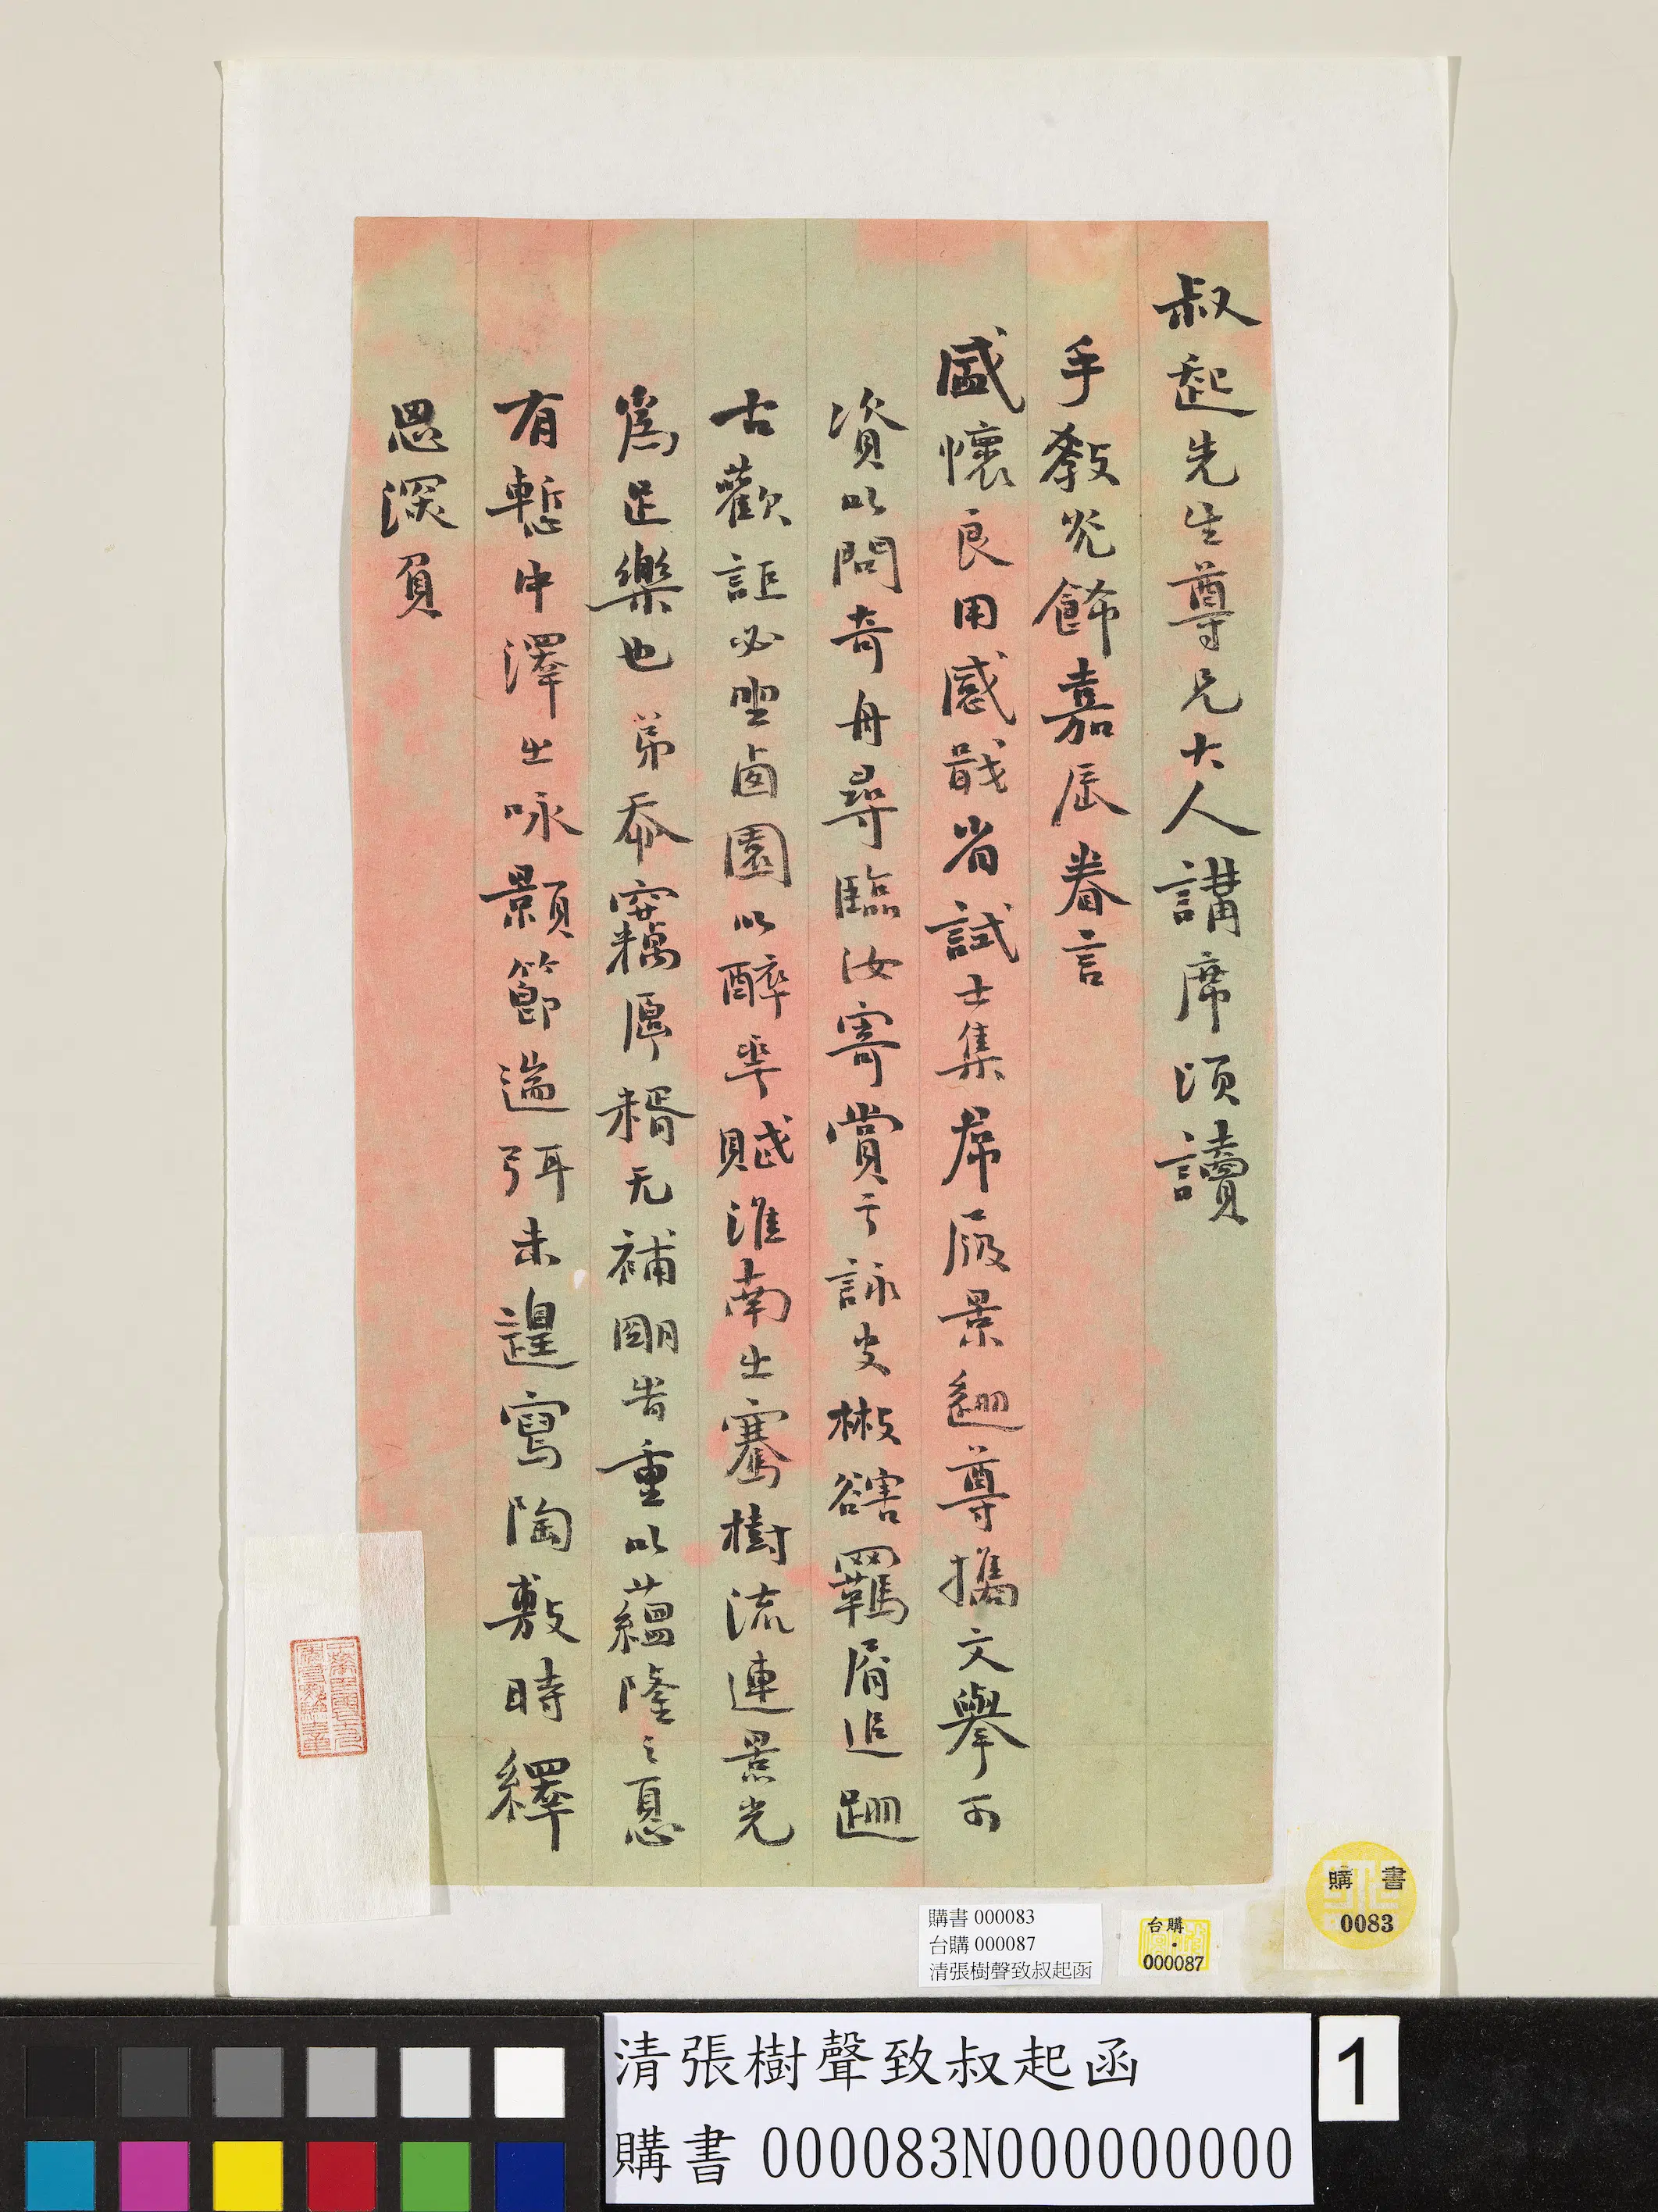 叔起先生尊兄大人講席頃讀
手教光飾嘉辰眷言
盛懷良用感戢省試士集席履景逦尊攜文舉可
資以問奇舟尋臨汝寄賞于詠史榝豁羈屑追跚
古歡詎必坐囱園以醉華賦淮南㞢騫樹流連景光
為足樂也弟忝竊厚糈无補剛眚重以蘊隆之憂
有慙中澤㞢咏顥節遄弭未遑寫陶敷時繹
思深負
購書 000083
台購 000087
清張樹聲致叔起函
台購
000087
購 書
0083
清張樹聲致叔起函
購書 000083N000000000
1